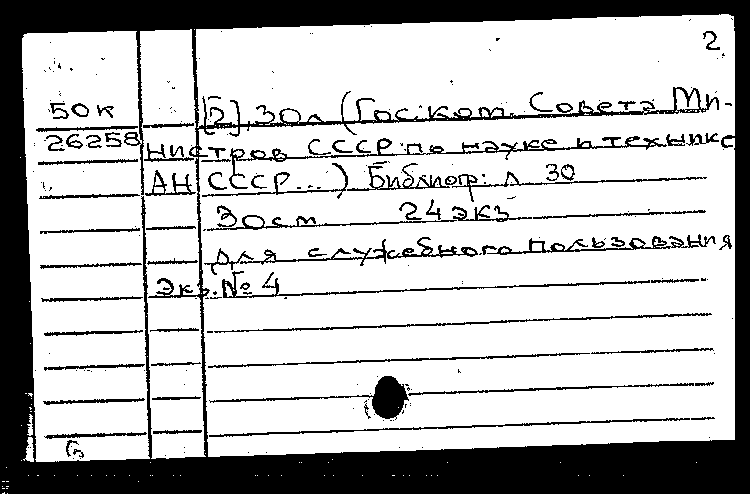 2
50к [2], 30л (Гос. ком. Совета Ми-
26258 нистров СССР по науке и технике
АН СССР...) Библиогр: л 30
30 см 24 экз
Для служебного пользования
Экз. № 4